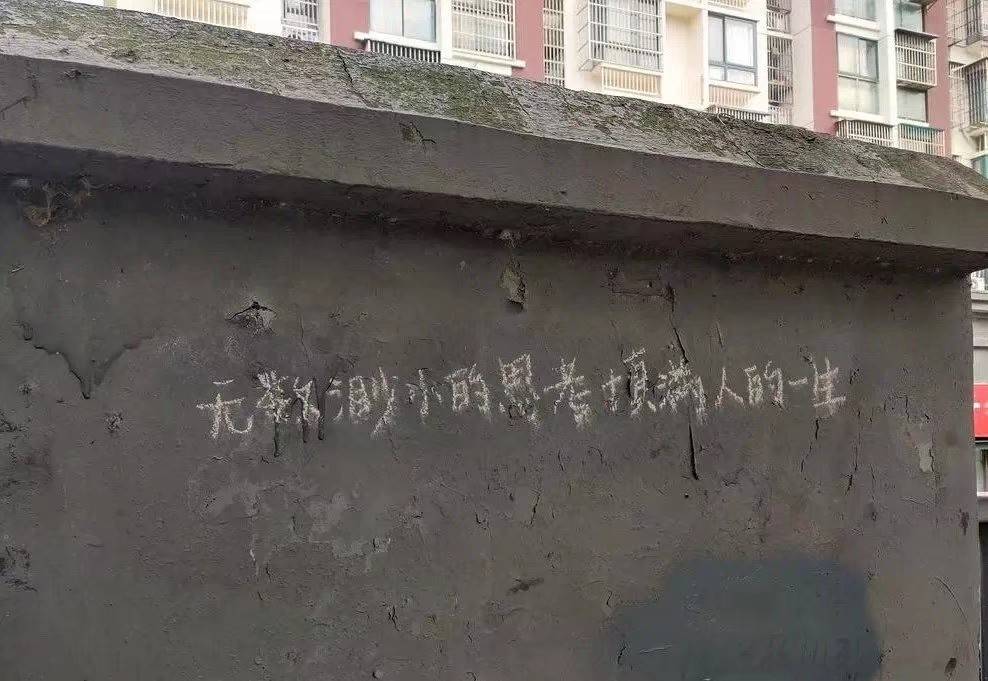 无数渺小的思考填满人的一生